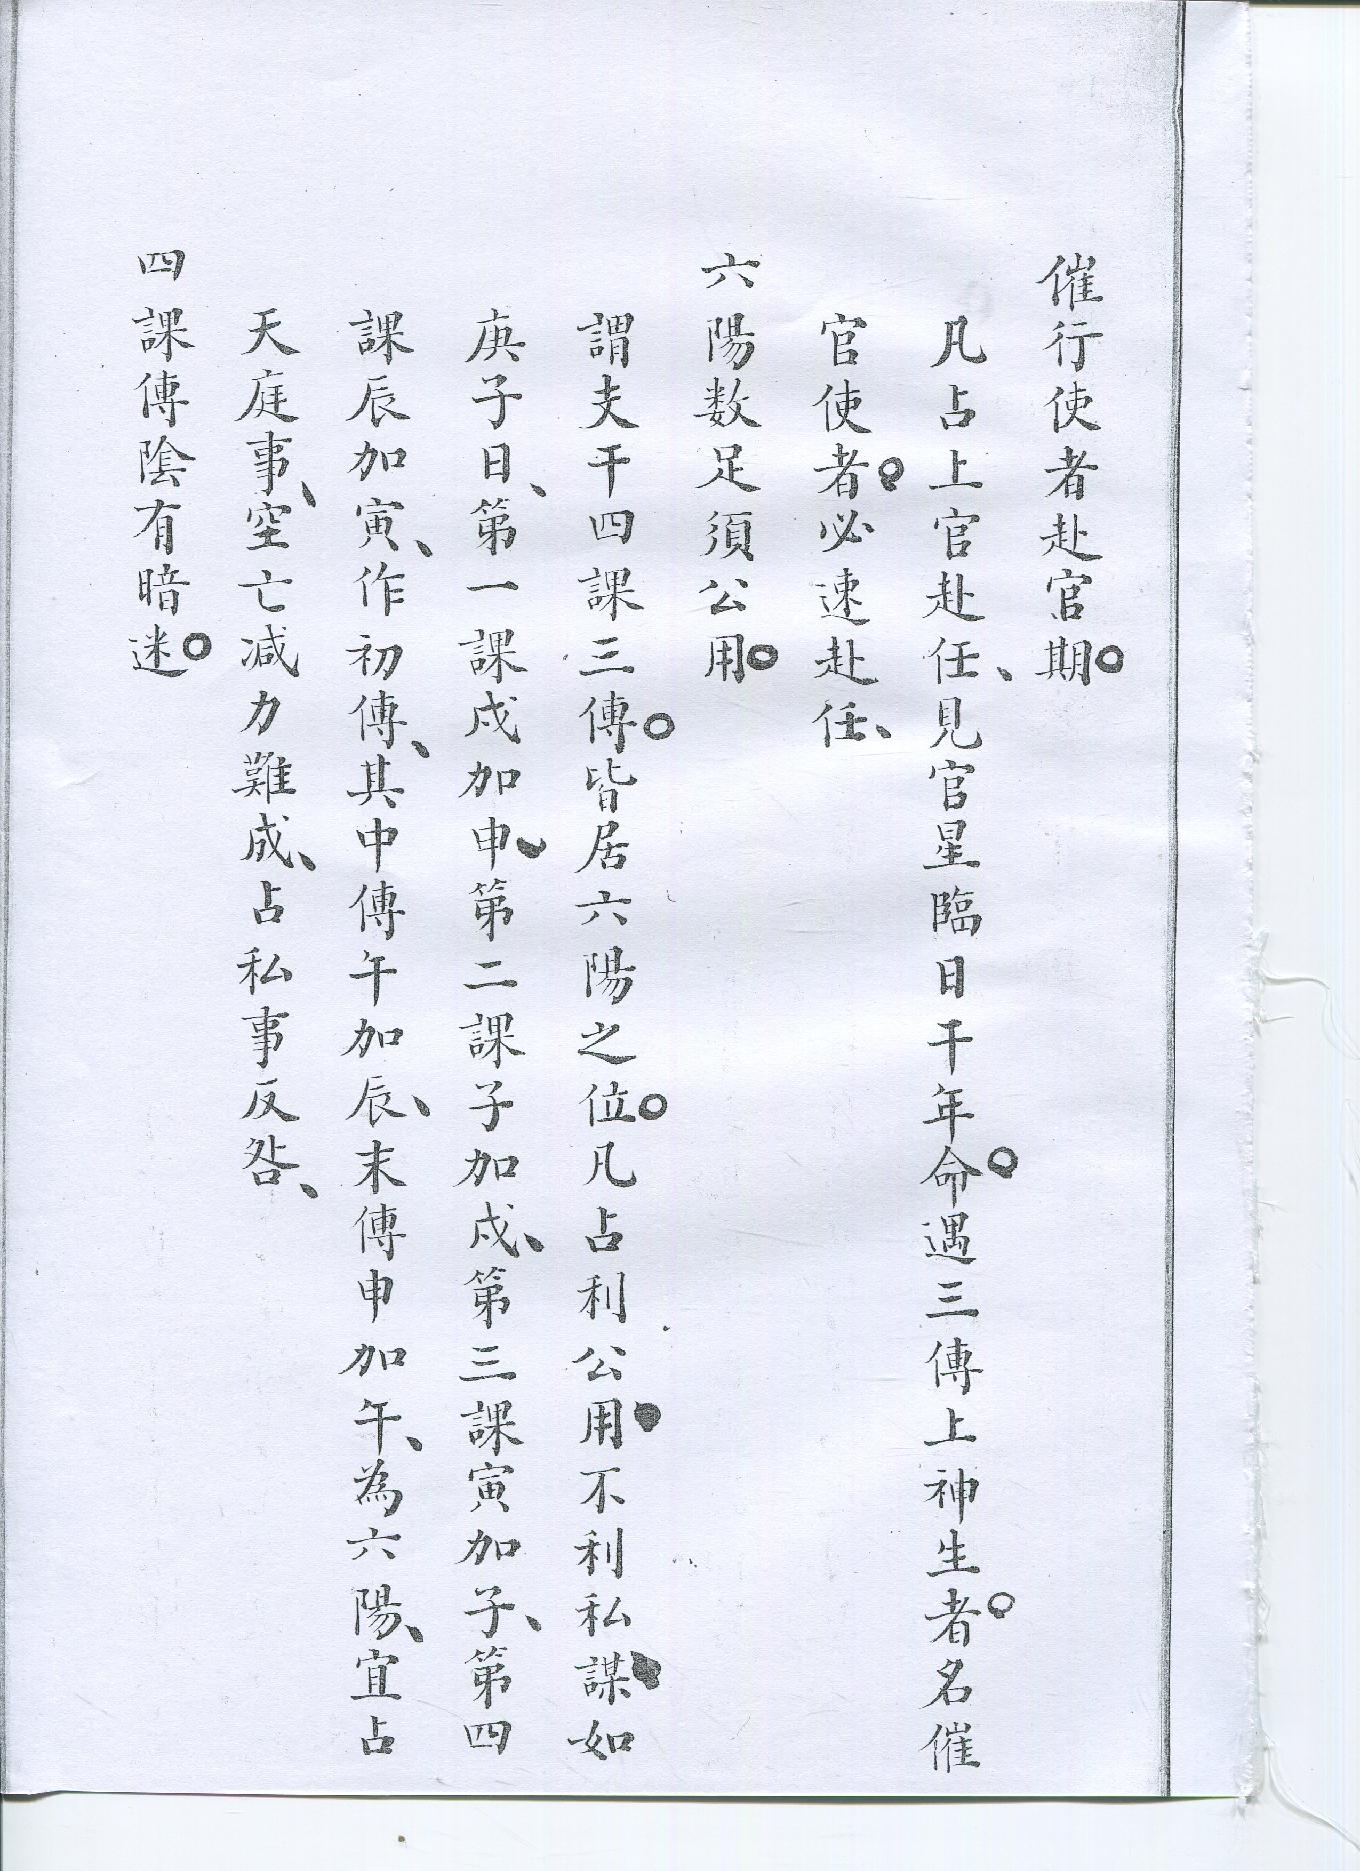 催行使者赴官期。
凡占上官赴任、見官星臨日干年命。遇三傳上神生者。名催
官使者。必速赴任、
六陽数足須公用。
謂支干四課三傳。皆居六陽之位。凡占利公用、不利私謀、如
庚子日、第一課戌加申、第二課子加戌、第三課寅加子、第四
課辰加寅、作初傳、其中傳午加辰、末傳申加午、為六陽、宜占
天庭事、空亡减力難成、占私事反咎、
四課傳陰有暗迷。